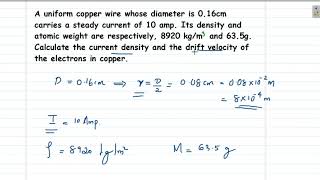 A uniform copper wire whose diameter is 0.16cm
carries a steady current of 10 amp. Its density and
atomic weight are respectively, 8920 kg/m³ and 63.5g.
Calculate the current density and the drift velocity of
the electrons in copper.
D = 0.16 cm ⟹ r = D/2 = 0.08 cm = 0.08×10⁻² m
= 8×10⁻⁴ m
I = 10 Amp.
ρ = 8920 kg/m³ M = 63.5 g